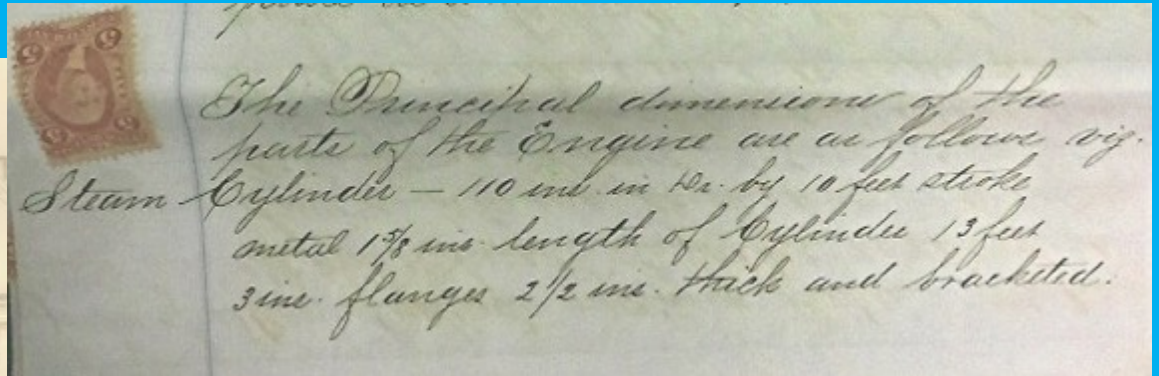 The Principal dimensions of the
parts of the Engine are as follows viz.
Steam Cylinder — 110 ins. in Dr. by 10 feet stroke
metal 1 5/8 ins. length of Cylinder 13 feet
3 ins. flanges 2 1/2 ins. thick and bracketed.